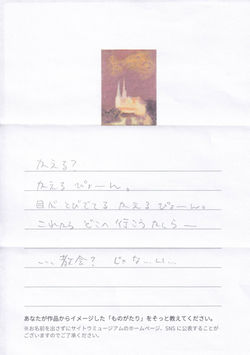 かえる?
かえる ぴょーん。
目だ とびでてる かえる ぴょーん。
これから どこへ 行こう かしらー
... 教会? じゃなーい...
あなたが作品からイメージした「ものがたり」をそっと教えてください。
※お名前を出さずにサイトウミュージアムのホームページ、SNSに公表することが
ございますのでご了承ください。